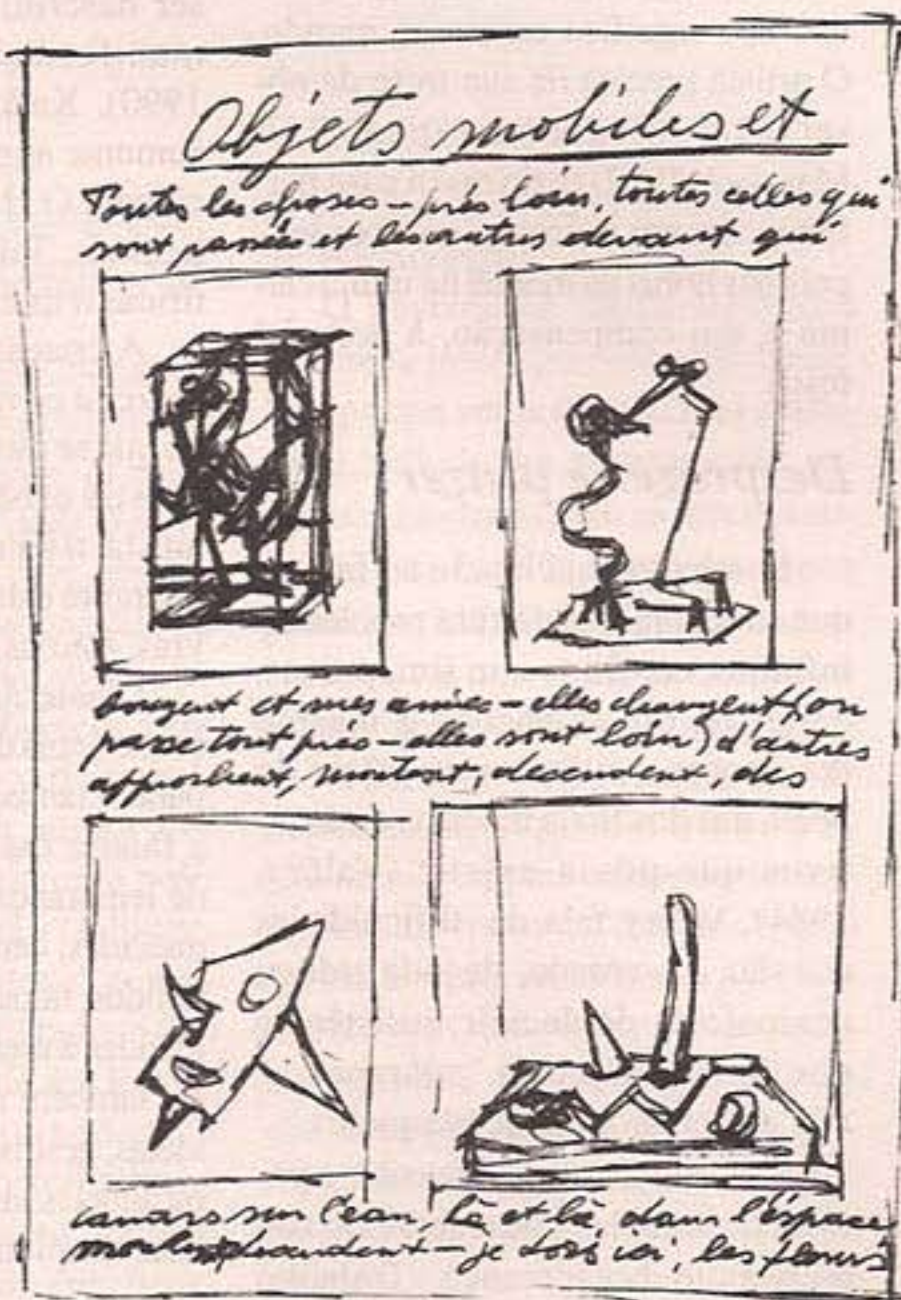 Objets mobiles et
Toutes les choses – près loin, toutes celles qui
sont passées et les autres devant qui
bougent et mes amies – elles changent (on
passe tout près – elles sont loin) d'autres
approchent, montent, descendent, des
canars sur l'eau, là et là dans l'éspace
descendent – je dors ici, les fleurs